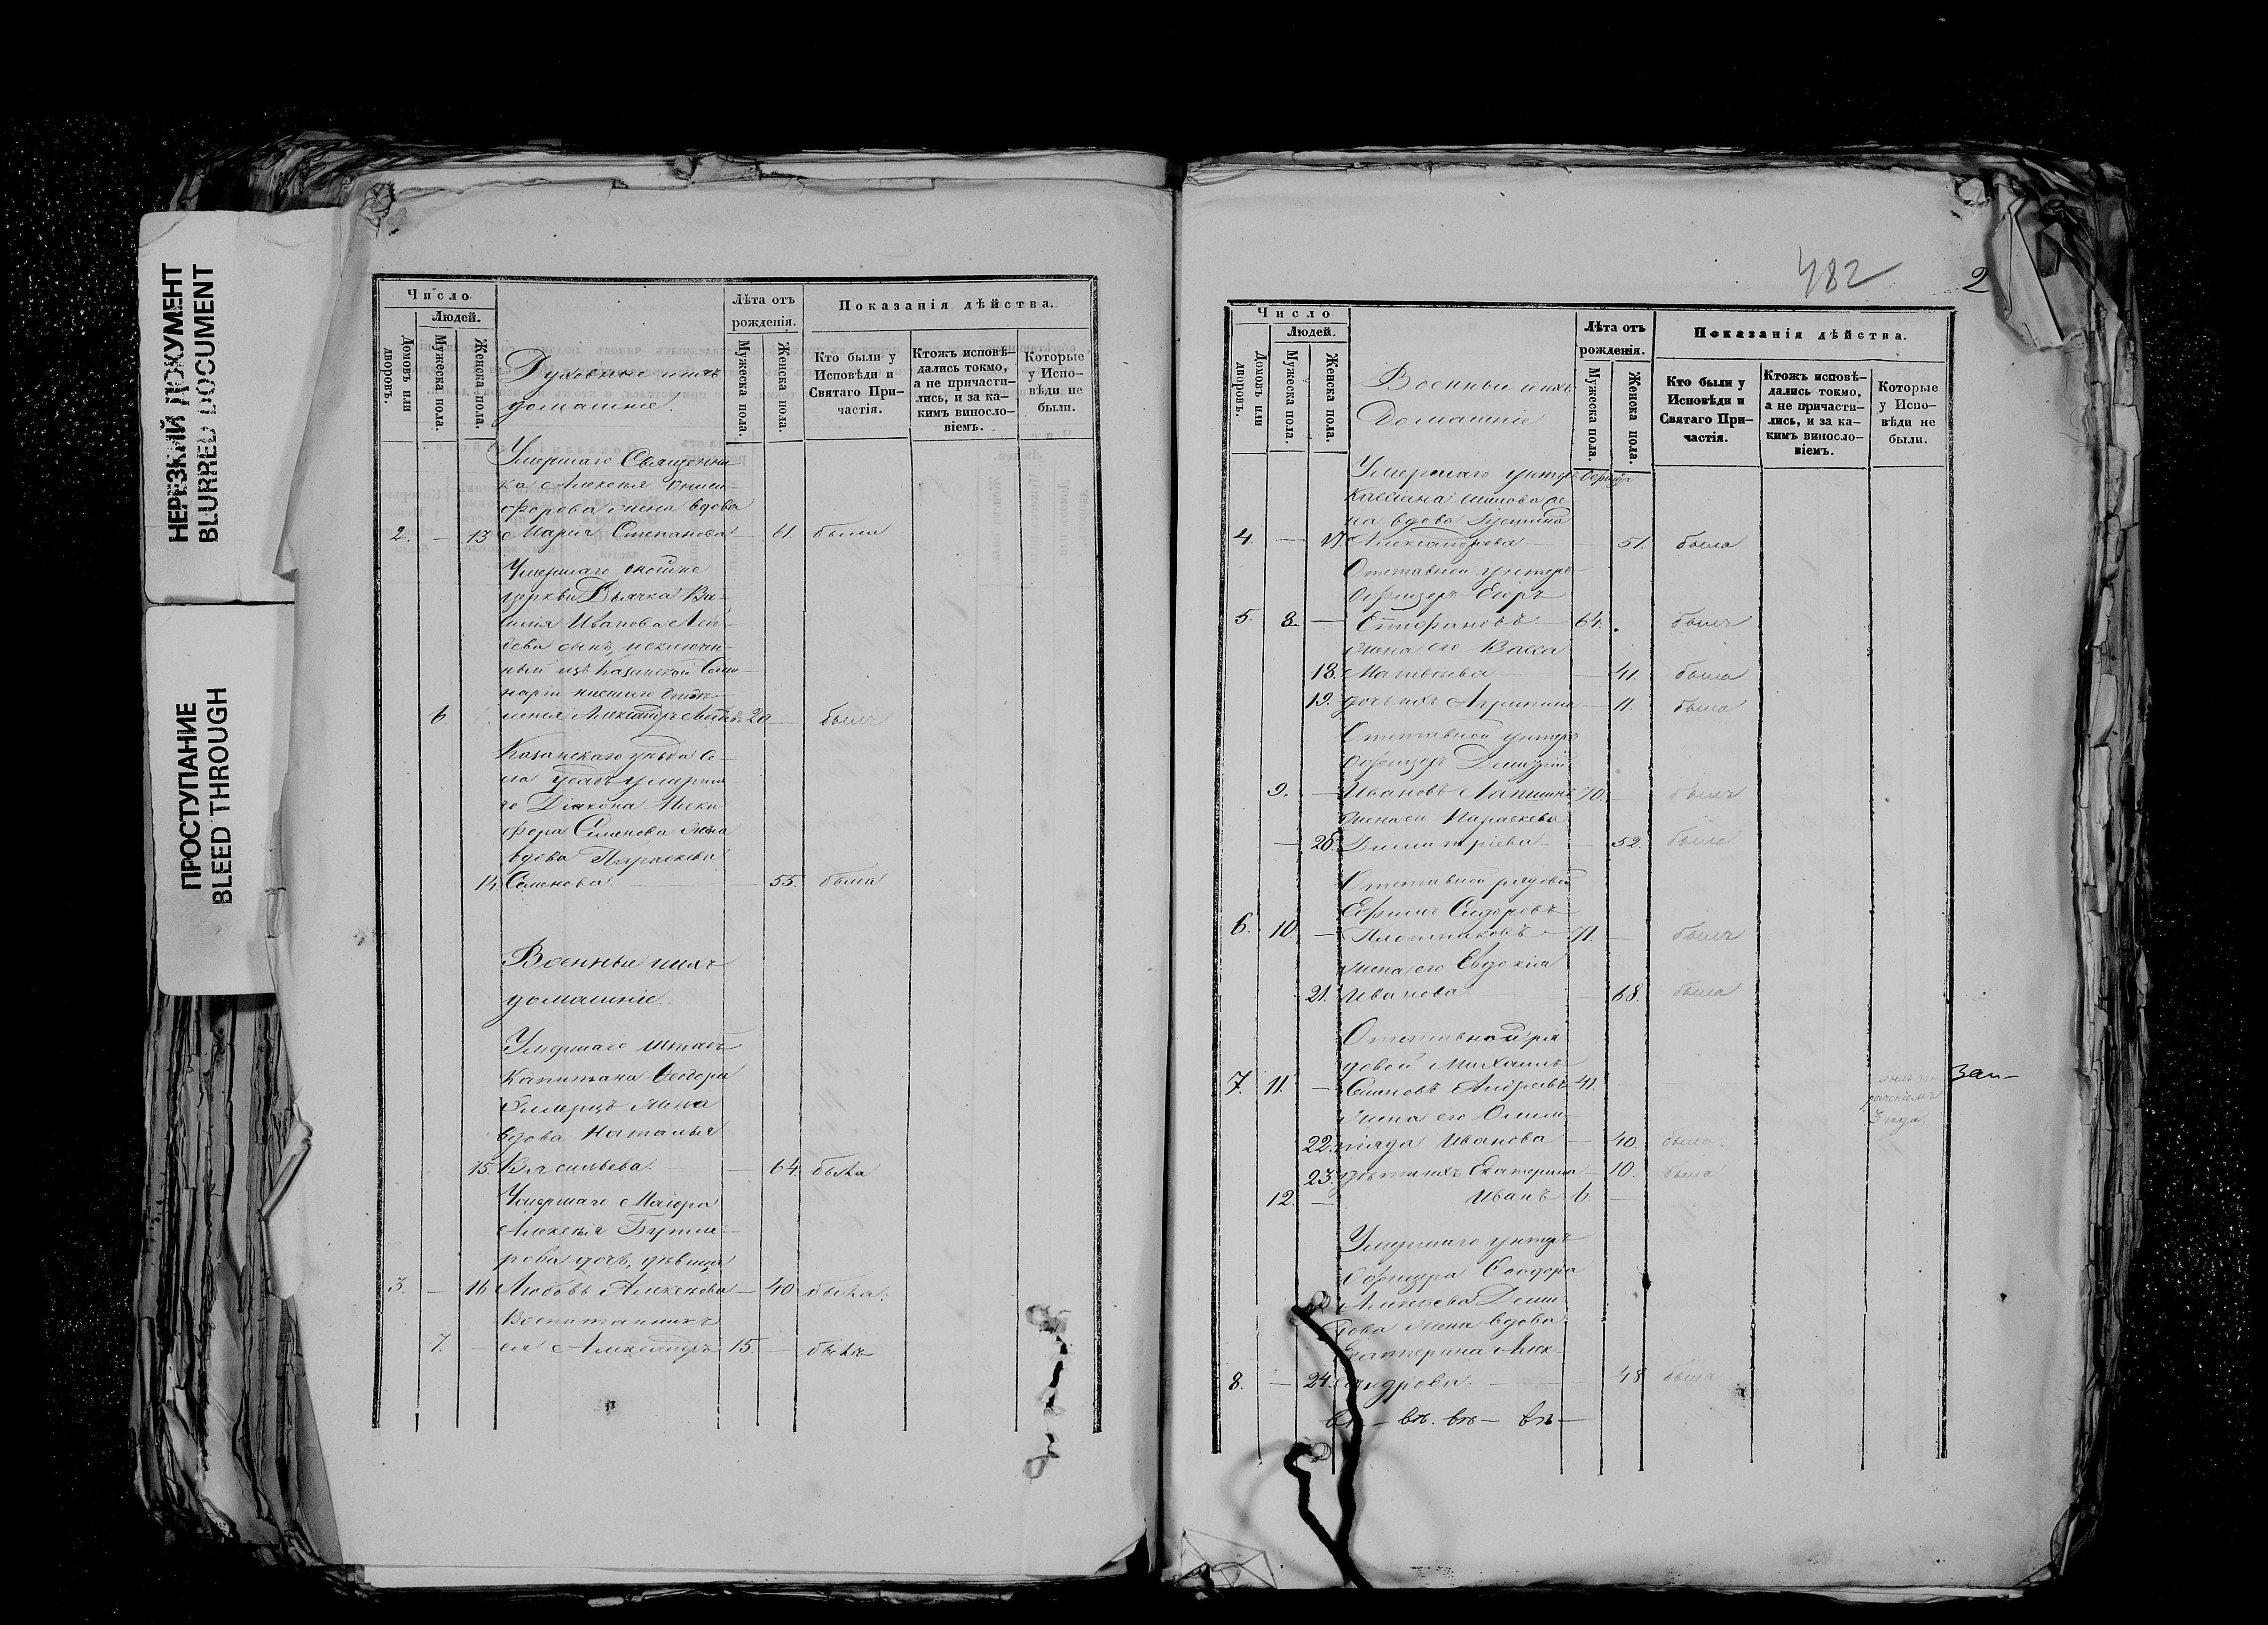 НЕРЕЗКИЙ ДОКУМЕНТ
BLURRED DOCUMENT
ПРОСТУПАНИЕ
BLEED THROUGH
Число
Людей.
Домовъ или дворовъ.
Мужеска пола.
Женска пола.
Духовные и ихъ
домашніе.
Лѣта отъ
рожденія.
Мужеска пола.
Женска пола.
Показанія дѣйства.
Кто были у
Исповѣди и
Святаго При-
частія.
Ктожъ исповѣ-
дались токмо,
а не причасти-
лись, и за ка-
кимъ виносло-
віемъ.
Которые
у Испо-
вѣди не
были.
Умершаго Священни
ка Алексѣя Ониси
форова жена вдова
2. — 13 Марія Степанова — 61. была
Умершаго
церкви Дьячка Ва-
силія Иванова
сынъ, исключен-
ный изъ Казанской Семи
наріи низшаго отдѣ-
6. ленія Александръ 20 — былъ
Казанскаго уѣзда Се-
ла умерша
го Діакона Ники
фора Семенова жена
вдова Параскева
14. Семенова. — 55. была
Военные и ихъ
домашніе.
Умершаго Штабъ
Капитана Ѳеодора
жена
вдова Наталья
15. Васильева. — 64. была
Умершаго Маіора
Алексѣя Бутле-
рова дочь, дѣвица
3. — 16 Любовь Алексѣева — 40 была.
Воспитанникъ
7. — ея Александръ 15. — былъ
482
2
Число
Людей.
Домовъ или дворовъ.
Мужеска пола.
Женска пола.
Военные и ихъ
Домашніе
Лѣта отъ
рожденія.
Мужеска пола.
Женска пола.
Показанія дѣйства.
Кто были у
Исповѣди и
Святаго При-
частія.
Ктожъ исповѣ-
дались токмо,
а не причасти-
лись, и за ка-
кимъ виносло-
віемъ.
Которые
у Испо-
вѣди не
были.
Умершаго унтеръ Офицера
Кассіана же
на вдова Іустина
4. — 17. Александрова — 51. была
Отставной унтеръ
Офицеръ
5. 8. — Епифановъ — 64. былъ
жена его Васса
18. Матвѣева — 41. была
19. дочь ихъ Агрипина — 11. была
Отставной унтеръ
Офицеръ Димитрій
9. — Ивановъ Лапшинъ 70. — былъ
жена его Параскева
— 20. Димитріева — 52. была
Отставной рядовой
Ефимъ Сидоровъ
6. 10. — Плотниковъ — 71. — былъ
жена его Евдокія
21. Иванова — 68. была
Отставной ря
довой Михаилъ
7. 11. — Семеновъ Андреевъ 41. — 3 года.
Зап-
жена его Олим-
22. піяда Иванова — 40. была.
23. дѣти ихъ Екатерина — 10. была
12. — Иванъ 6. —
Умершаго унтеръ
Офицера Ѳеодора
Алексѣева Деми
дова жена вдова
Екатерина Алек-
8. — 24. сандрова. — 48 была